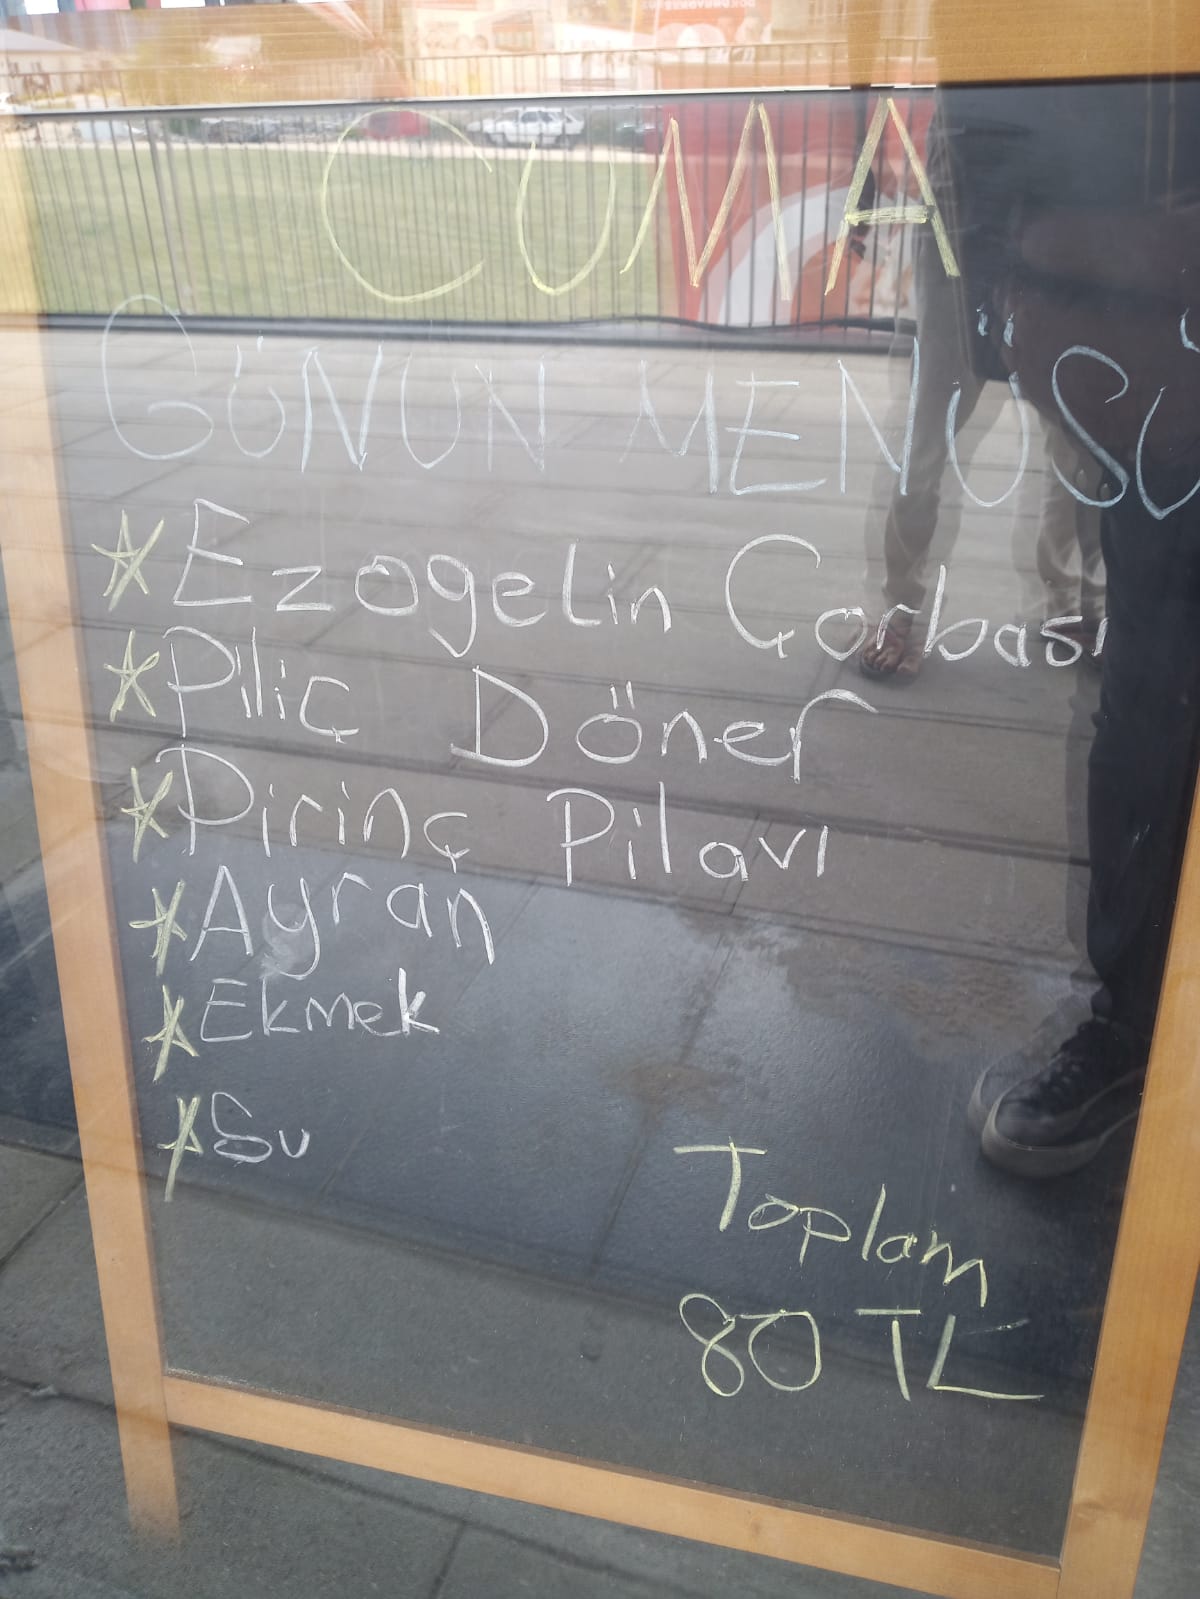 CUMA
GÜNÜN MENÜSÜ
* Ezogelin Çorbası
* Piliç Döner
* Pirinç Pilavı
* Ayran
* Ekmek
* Su
Toplam
80 TL